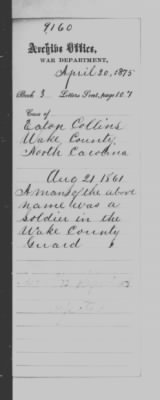 9160
Archive Office,
WAR DEPARTMENT,
April 20, 1875
Book 3 Letters Sent, page 107
Case of
Eaton Collins
Wake County,
North Carolina
Aug 21 1861
A man of the above
name was a
soldier in the
Wake County
Guard